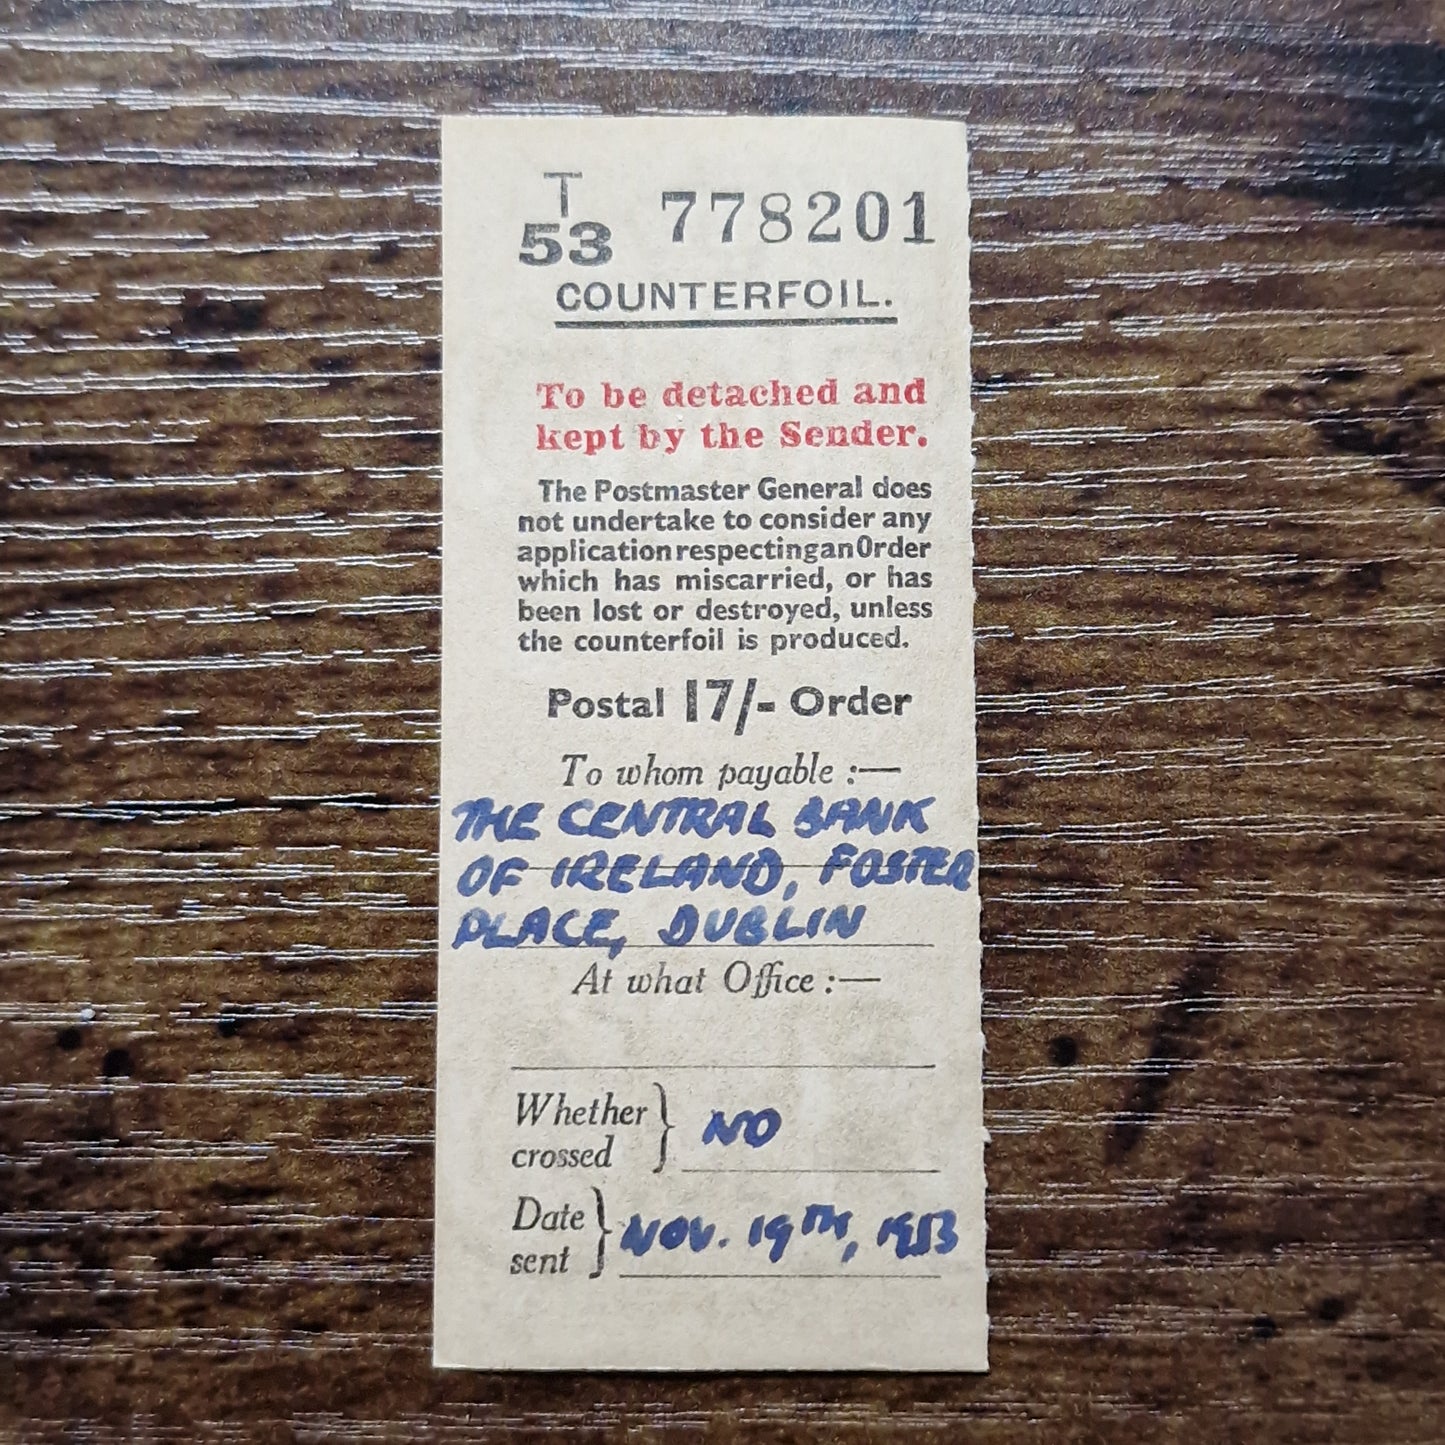 T
53 778201
COUNTERFOIL.
To be detached and
kept by the Sender.
The Postmaster General does
not undertake to consider any
application respecting an Order
which has miscarried, or has
been lost or destroyed, unless
the counterfoil is produced.
Postal 17/- Order
To whom payable :—
THE CENTRAL BANK
OF IRELAND, FOSTER
PLACE, DUBLIN
At what Office :—
Whether
crossed } NO
Date
sent } NOV. 19TH, 1953